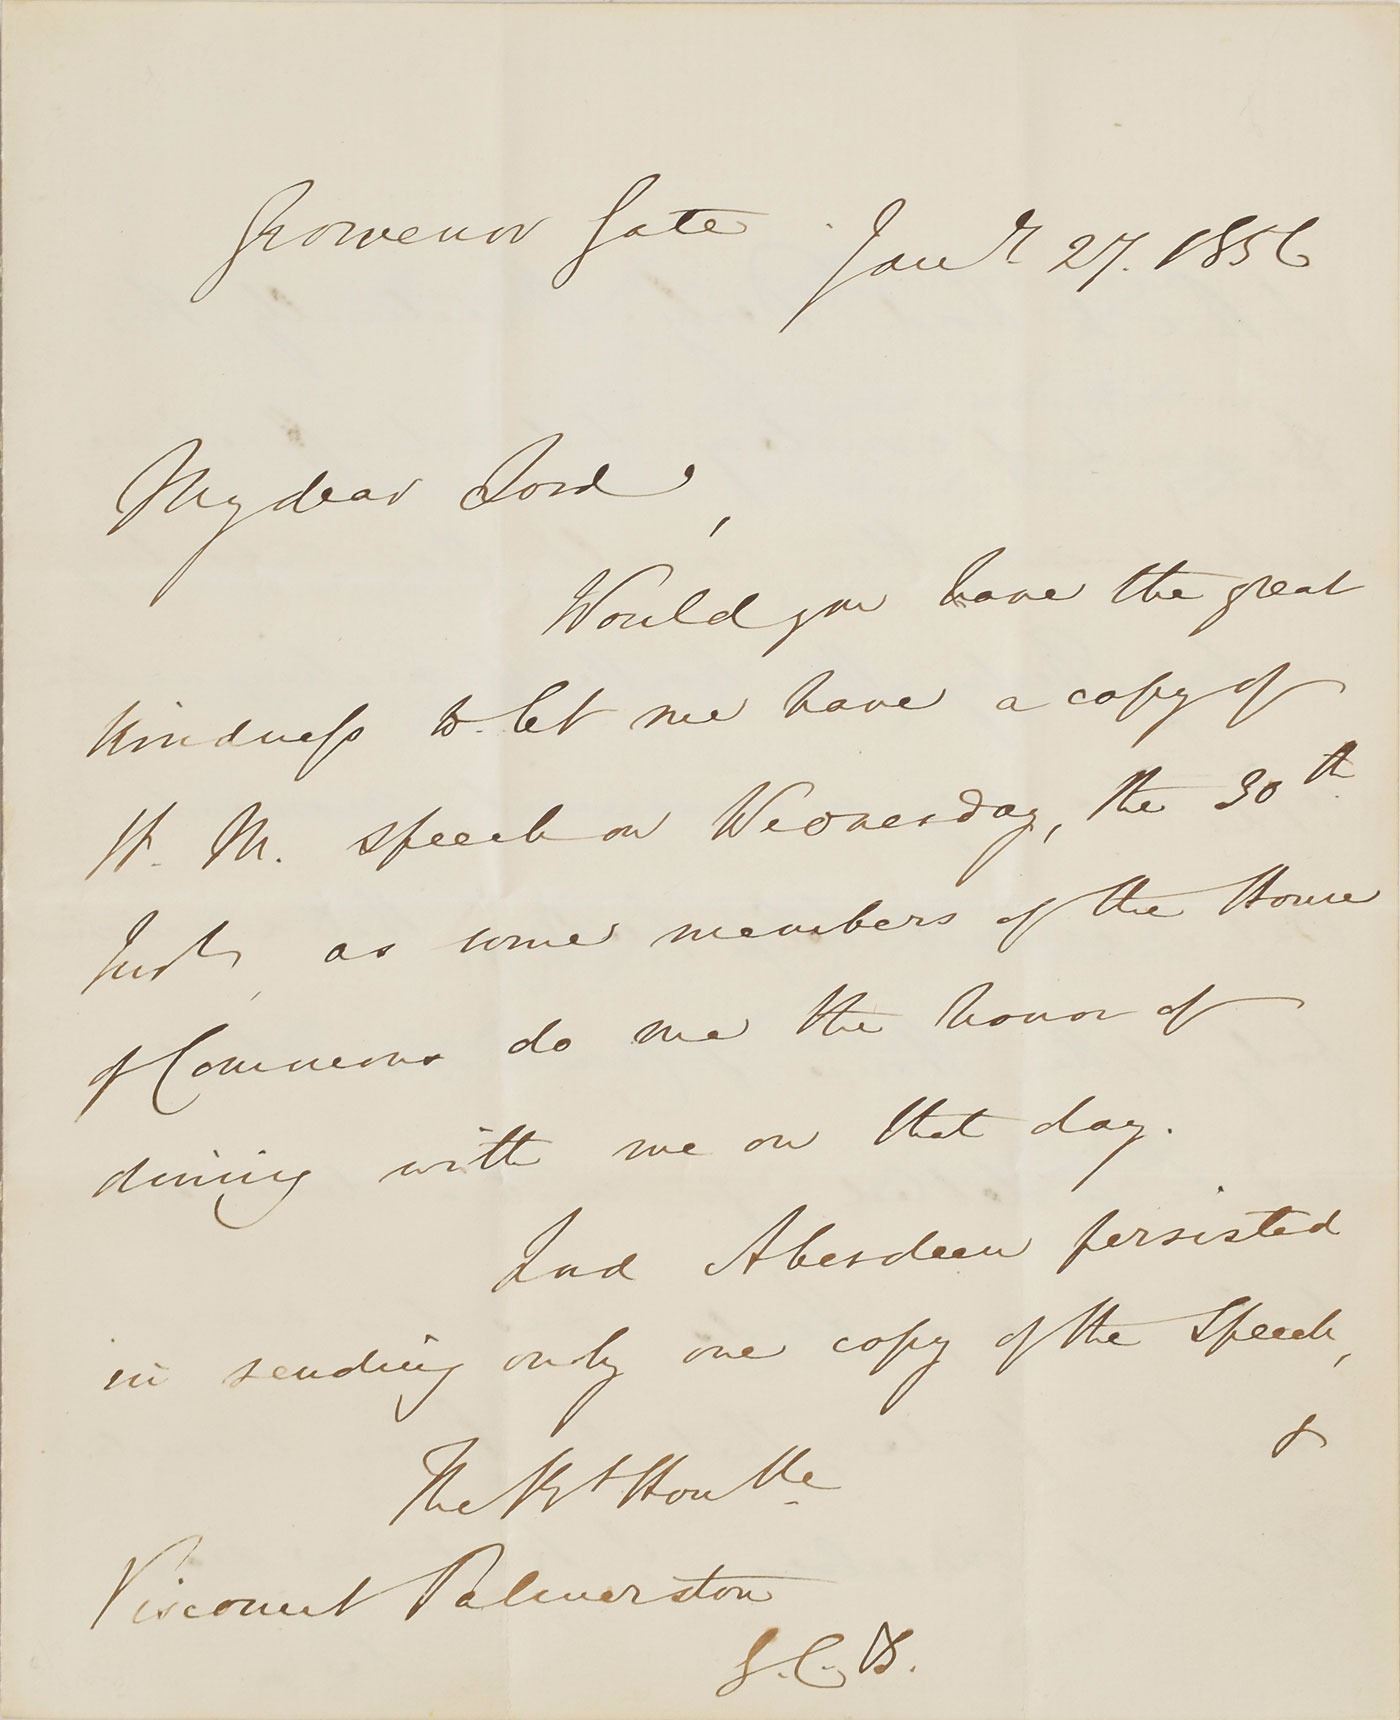 Grosvenor Gate Jan.r 27. 1856
My dear Lord,
Would you have the great
kindness to let me have a copy of
H. M. speech on Wednesday, the 30th
Inst, as some members of the House
of Commons do me the honor of
dining with me on that day.
Lord Aberdeen persisted
in sending only one copy of the Speech,
&
The Rt Honble
Viscount Palmerston
G.C.B.